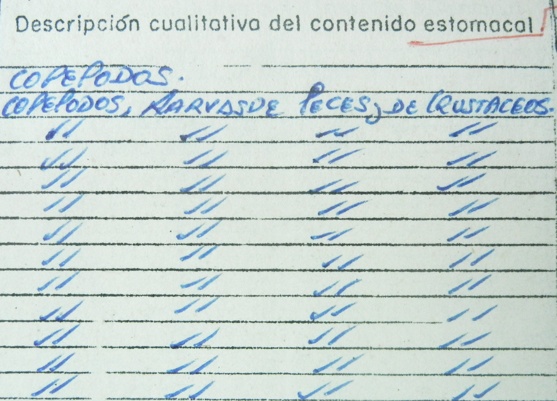 Descripción cualitativa del contenido estomacal
COPEPODOS.
COPEPODOS, LARVAS DE PECES, DE CRUSTACEOS.
" " " "
" " " "
" " " "
" " " "
" " " "
" " " "
" " " "
" " " "
" " " "
" " " "
" " " "